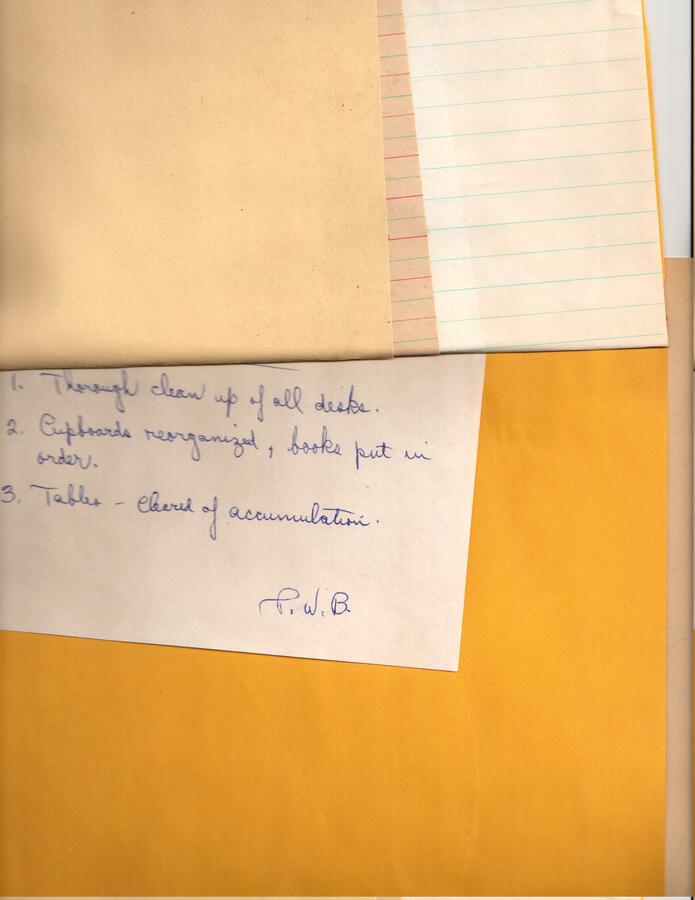 1. Thorough clean up of all desks.
2. Cupboards reorganized, books put in
order.
3. Tables - cleared of accumulation.
P.W.B.